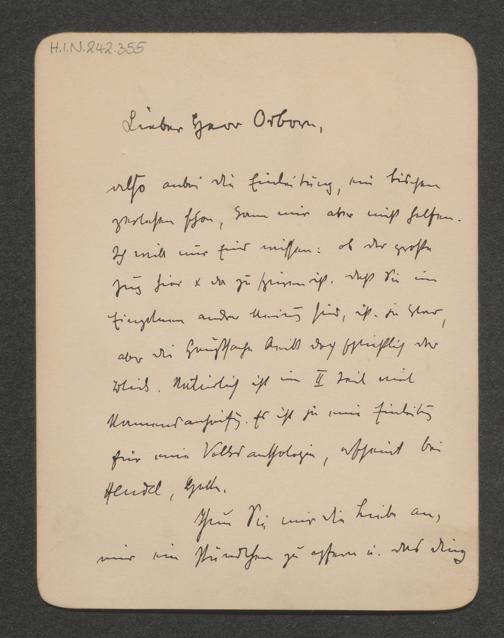 H.I.N. 242.355
Lieber Herr Osborn,
also anbei die Einleitung, ein bischen
zerlesen schon, kann mir aber nicht helfen.
Ich will nur Eins wissen: ob der große
Zug hier & da zu spüren ist. Daß Sie im
Einzelnen andrer Meinung sind, ist ja klar,
aber die Hauptsache bleibt doch schließlich der
Natürlich ist im II Teil viel
Es ist ja eine Einleitung
für eine Volksanthologie, erscheint bei
Hendel, Halle.
Thun Sie mir die Liebe an,
mir ein Stündchen zu opfern u. das Ding